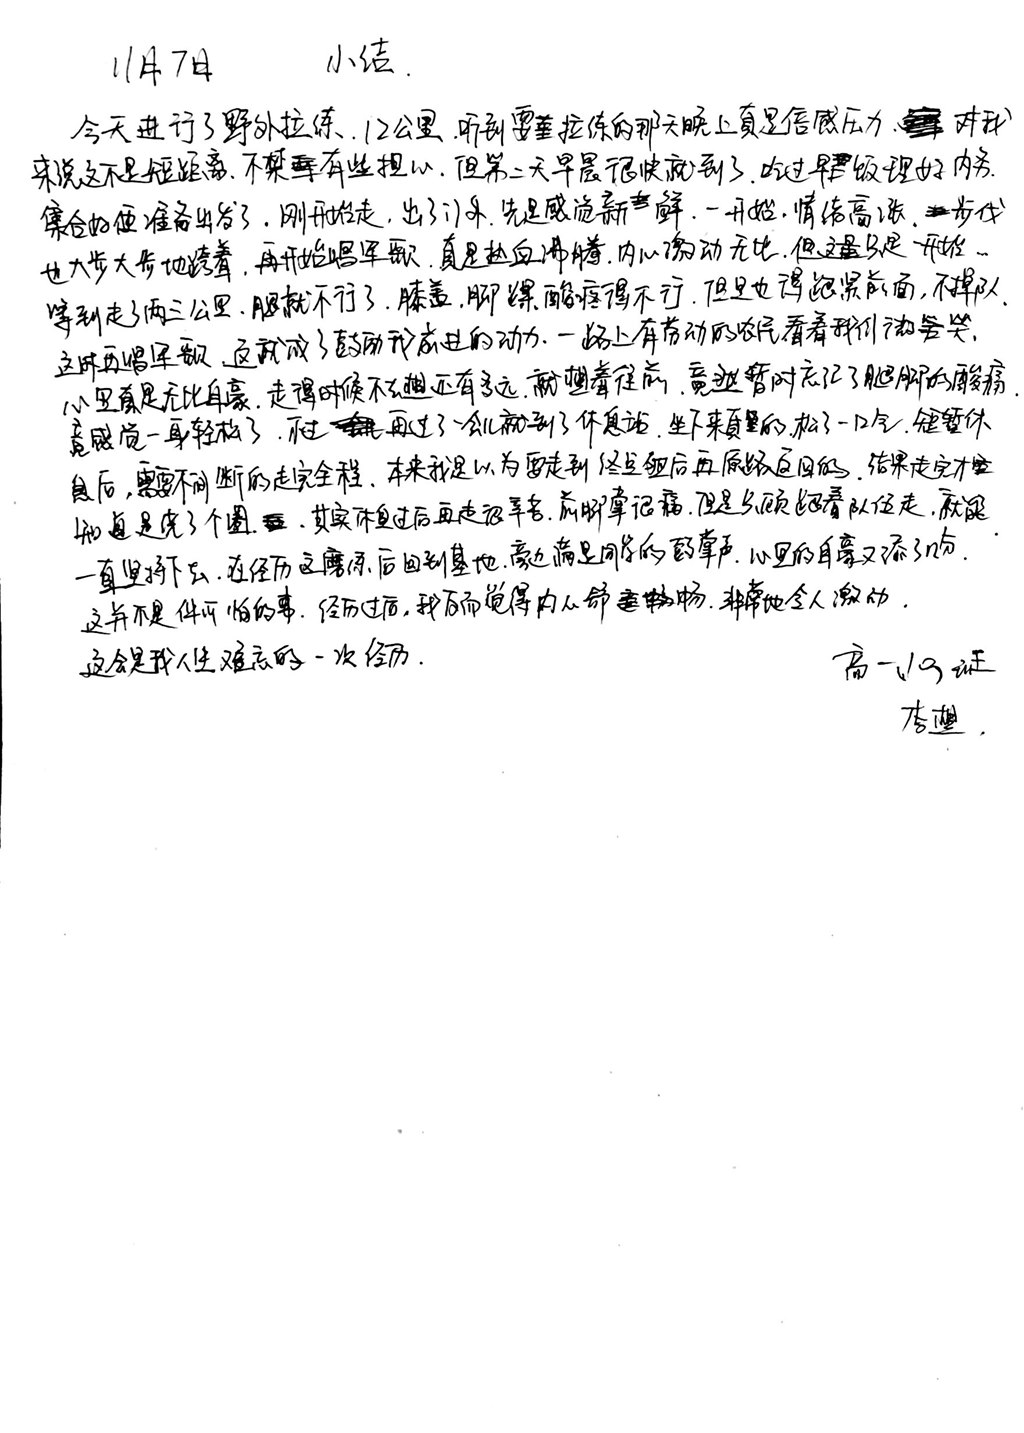 11月7日 小结.
今天进行了野外拉练、12公里、听到要拉练的那天晚上真是倍感压力、对我
来说这不是短距离、不禁有些担心、但第二天早晨很快就到了、吃过早饭理好内务
集合好便准备出发了.刚开始走,出了门外.先是感觉新鲜.一开始,情绪高涨.步伐
也大步大步地跨着、再开始唱军歌、真是热血沸腾、内心激动无比.但这只是开始..
等到走了两三公里、腿就不行了.膝盖,脚踝酸疼得不行.但是也得跟紧前面,不掉队.
这时再唱军歌、这就成了鼓励我前进的动力.一路上有劳动的农民看着我们微笑,
心里真是无比自豪、走得时候不去想还有多远、就想着往前、竟然暂时忘记了腿脚的酸痛
竟感觉一身轻松了.不过再过了一会儿就到了休息站.坐下来真的松了一口气.短暂休
息后,需要不间断的走完全程、本来我是以为要走到终点细后再原路返回的、结果走完才
知道是绕了个圈.其实休息过后再走很辛苦.前脚掌很痛.但是只顾跟着队伍走、就能
一直坚持下去.在经历这磨练后回到基地、旁边满是同学的鼓掌声、心里的自豪又添了几分.
这并不是件可怕的事.经历过后,我反而觉得内心舒畅.非常地令人激动.
这会是我人生难忘的一次经历.
高一
李想.